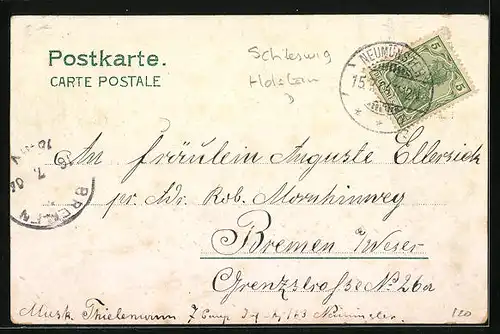 Postkarte.
CARTE POSTALE
Schleswig
Holstein
NEUMÜNSTER
15
5
5
An Fräulein Auguste Ellersiek
pr. Adr. Rob. Mornhinweg
Bremen a/Weser
Grenzstraße No. 26a
BREMEN
16
7. 04
Musk. Thielemann 7 Comp. 163 Neumünster.
120